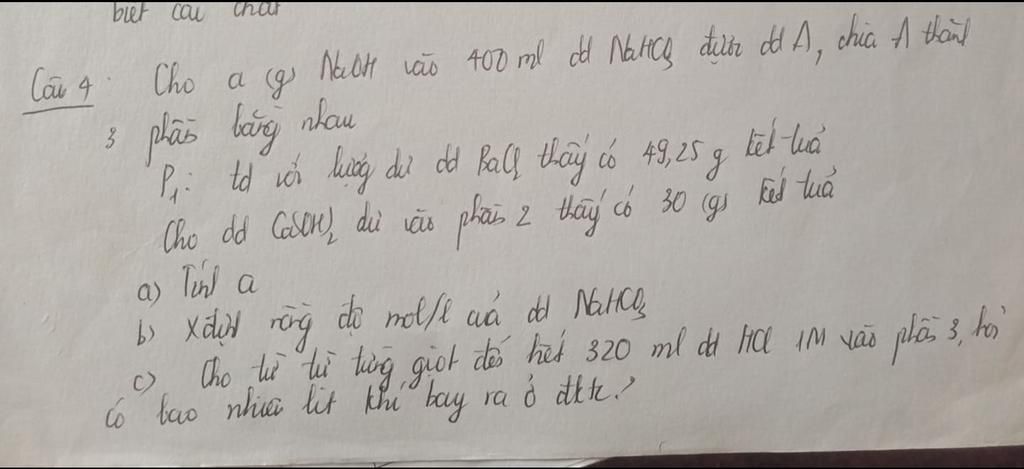 biết câu chất
Câu 4: Cho a (g) NaOH vào 400 ml dd NaHCO3 được dd A, chia A thành
3 phần bằng nhau
P1: td với lượng dư dd BaCl2 thấy có 49,25 g kết tuả
Cho dd Ca(OH)2 dư vào phần 2 thấy có 30 (g) kết tuả
a) Tính a
b) Xđịnh nồng độ mol/l cuả dd NaHCO3
c) Cho từ từ từng giọt đến hết 320 ml dd HCl 1M vào phần 3, hỏi
có bao nhiêu lit khí bay ra ở đktc?